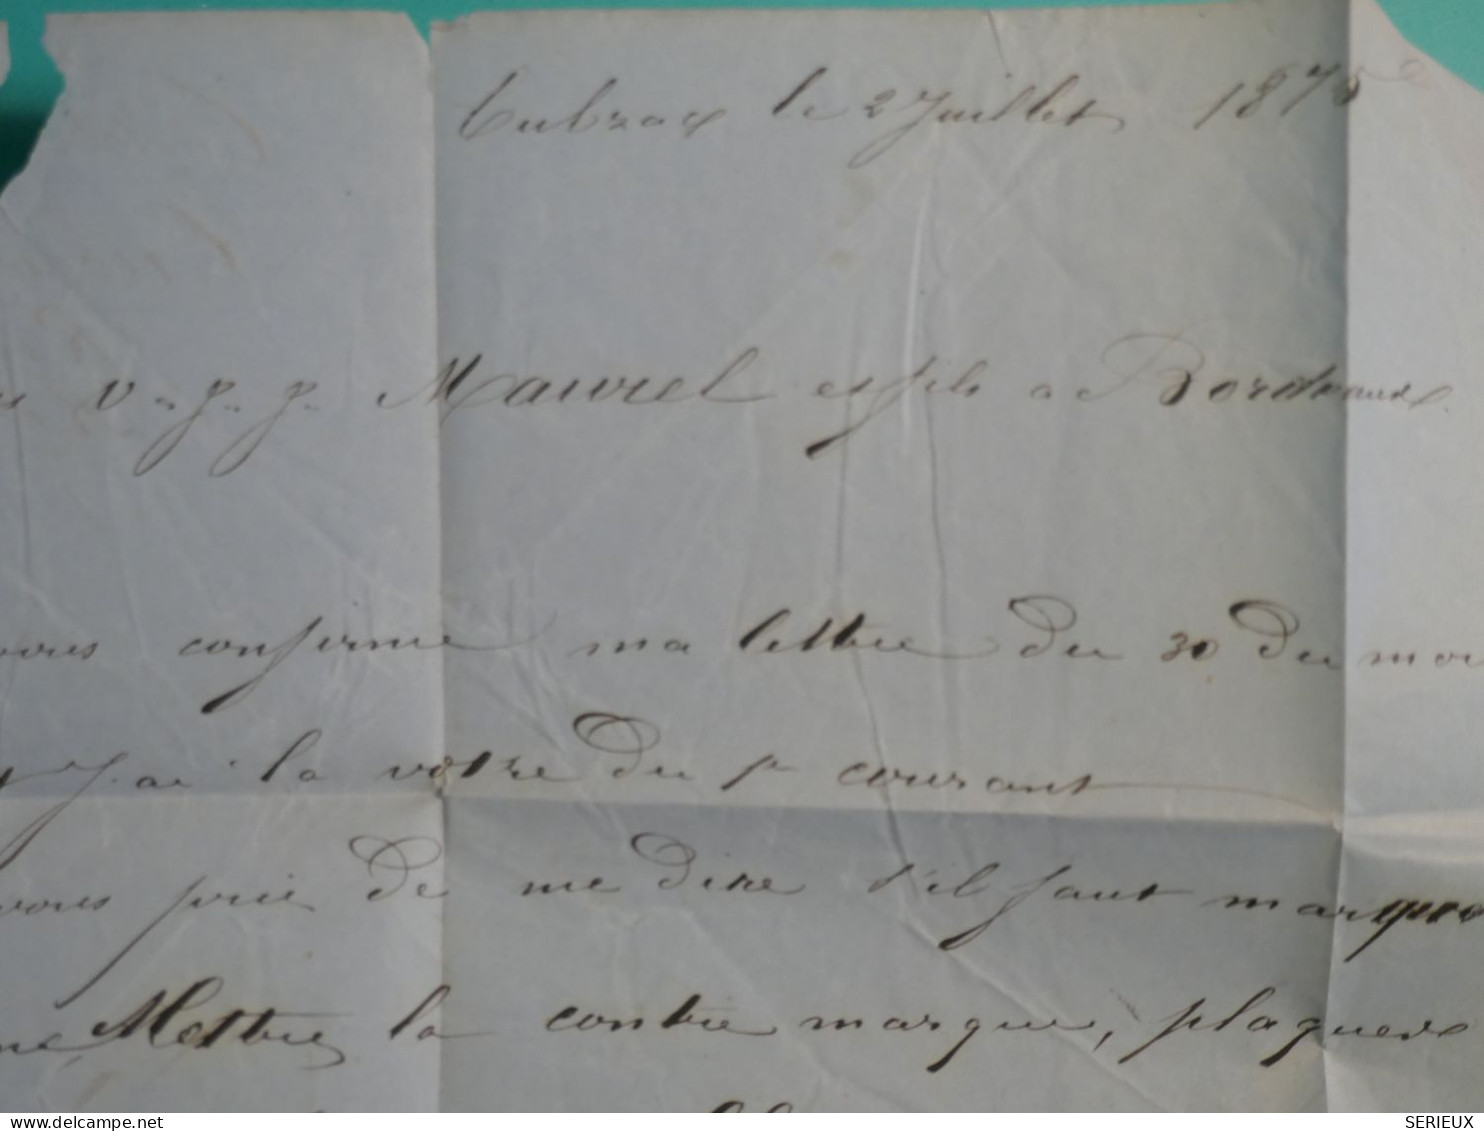 Cubzac le 2 Juillet 1875
V. J. J. Maurel et fils a Bordeaux
vous confirme ma lettre du 30 du moi
J'ai la votre du 1er courant
vous prie de me dire s'il faut marquer
Mettre la contre marque, plaquer
SERIEUX